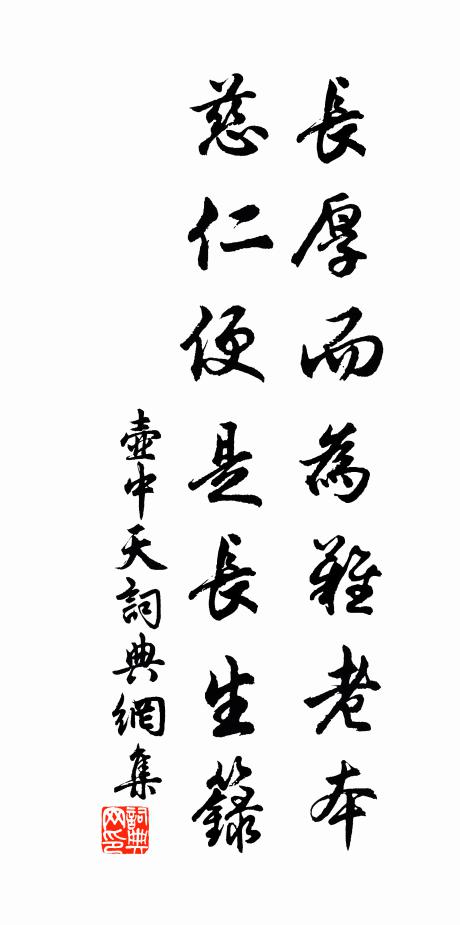 長厚而為難老本
慈仁便是長生籙
壺中天詞典網集
詞典網印